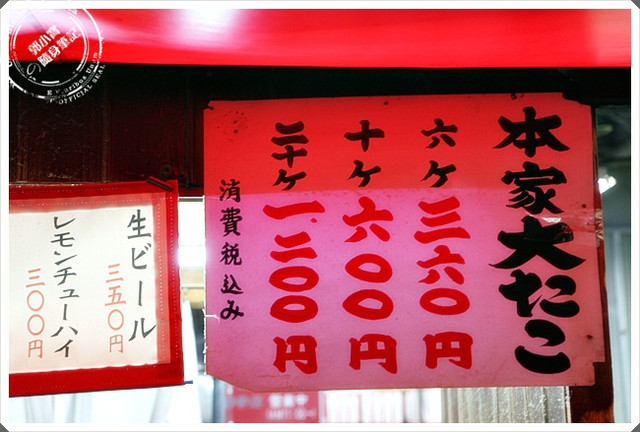 本家大たこ
六ケ 三六〇円
十ケ 六〇〇円
二十ケ 一二〇〇円
消費税込み
生ビール
三五〇円
レモンチューハイ
三〇〇円
郭小寶
の隨身筆記
OFFICIAL SEAL